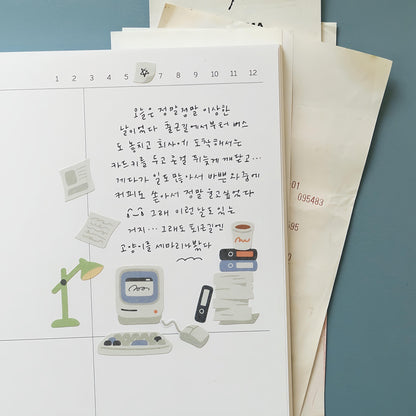 1 2 3 4 5 7 8 9 10 11 12
오늘은 정말정말 이상한
날이었다 출근길에서부터 버스
도 놓치고 회사에 도착해서는
카드키를 두고 온걸 뒤늦게 깨닫고...
게다가 일도 많아서 바쁜 와중에
커피도 쏟아서 정말 울고싶었다
그래 이런날도 있는
거지... 그래도 퇴근길엔
고양이를 세마리나봤다
-01
095483